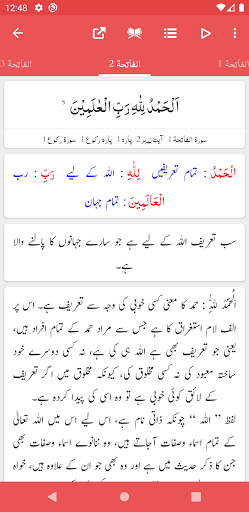 12:48
الفاتحۃ 1
الفاتحۃ 2
الفاتحۃ 3
اَلْحَمْدُ لِلّٰهِ رَبِّ الْعٰلَمِیْنَ ۙ
سورۃ الفاتحۃ 1 آیت نمبر 2 پارہ 1 پارہ رکوع 1 سورۃ رکوع 1
الْحَمْدُ : تمام تعریفیں لِلّٰہِ : اللہ کے لیے رَبِّ : رب
الْعَالَمِينَ : تمام جہان
سب تعریف اللہ کے لیے ہے جو سارے جہانوں کا پالنے والا
ہے۔
اَلْحَمْدُ لِلّٰهِ : حمد کا معنی کسی خوبی کی وجہ سے تعریف ہے۔ اس پر
الف لام استغراق کا ہے جس سے مراد حمد کے تمام افراد ہیں،
یعنی جو تعریف بھی ہے اللہ ہی کی ہے، نہ کسی دوسرے خود
ساختہ معبود کی نہ کسی مخلوق کی، کیونکہ مخلوق میں اگر تعریف
کے لائق کوئی خوبی ہے تو وہ اسی کی پیدا کردہ ہے۔
لفظ ” اللہ “ چونکہ ذاتی نام ہے، اس لیے اس میں اللہ تعالیٰ
کے تمام اسماء وصفات آجاتے ہیں، وہ ننانوے اسماء وصفات بھی
جن کا ذکر حدیث میں ہے اور وہ بھی جو ان کے علاوہ ہیں، خواہ